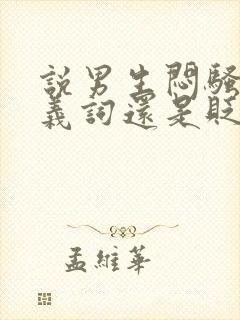 說男生悶騷
義詞還是貶
孟維華